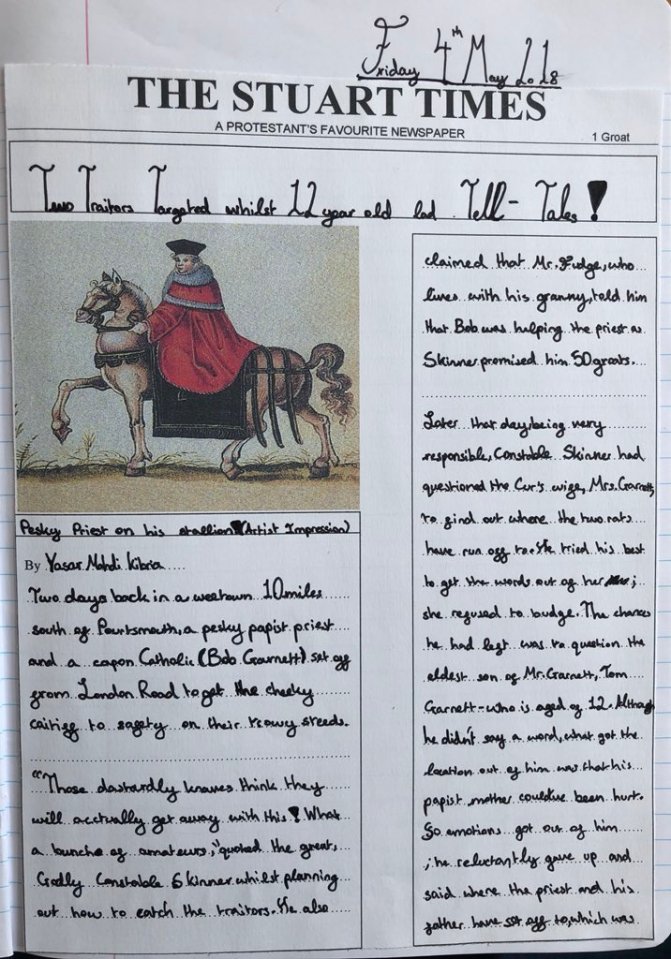 Friday 4th May 2018
THE STUART TIMES
A PROTESTANT'S FAVOURITE NEWSPAPER
1 Groat
Two Traitors Targeted whilst 12 year old lad Tell-Tales!
Pesky Priest on his stallion! (Artist Impression)
By Yasar Mahdi Kibria
Two days back in a weetown 10 miles
south of Pourtsmouth, a pesky papist priest
and a capon Catholic (Bob Garnett) set off
from London Road to get the cheeky
caitiff to safety on their steeds.
"Those dastardly knaves think they
will acctually get away with this! What
a bunche of amateurs," quoted the great,
Godly Constable Skinner whilst planning
out how to catch the traitors. He also
claimed that Mr. Fudge, who
lives with his granny, told him
that Bob was helping the priest as
Skinner promised him 50 groats.
Later that day, being very
responsible, Constable Skinner had
questioned the Cur's wife, Mrs. Garnett,
to find out where the two rats
have run off to. He tried his best
to get the words out of her ;
she refused to budge. The chances
he had left was to question the
eldest son of Mr. Garnett, Tom
Garnett - who is aged of 12. Although
he didn't say a word, what got the
location out of him was that his
papist mother could've been hurt.
So emotions got out of him
; he reluctantly gave up and
said where the priest and his
father have set off to, which was